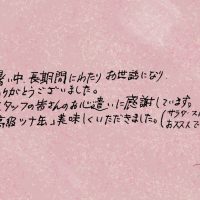 暑い中、長期間にわたり お世話になり
ありがとうございました。
スタッフの皆さんのお心遣いに感謝しています。
高級ツナ缶」美味しくいただきました。(サラダ
おススメで